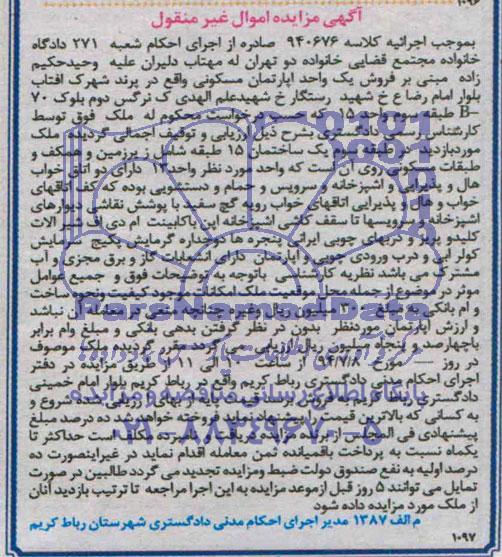 ۱۰۹۶
آگهی مزایده اموال غیر منقول
بموجب اجرائیه کلاسه ۹۴۰۶۷۶ صادره از اجرای احکام شعبه ۲۷۱ دادگاه
خانواده مجتمع قضایی خانواده دو تهران له مهتاب دلیران علیه وحیدحکیم
زاده مبنی بر فروش یک واحد اپارتمان مسکونی واقع در پرند شهرک افتاب
بلوار امام رضا ع خ شهید رستگار خ شهیدعلم الهدی ک نرگس دوم بلوک ۷۰
B– طبقه سوم واحد ۱۵ که حسب درخواست محکوم له ملک فوق توسط
کارشناس رسمی دادگستری بشرح ذیل ارزیابی و توقیف اجمالی گردیده ملک
موردبازدید در طبقه سوم یک ساختمان ۱۵ طبقه شامل زیرزمین و همکف و
طبقات مسکونی روی آن است که واحد مورد نظر واحد دارای دو اتاق خواب
هال و پذیرایی و اشپزخانه و سرویس و حمام و دستشویی بوده که کف اتاقهای
خواب و هال و پذیرایی اتاقهای خواب رویه گچ سفید با پوشش نقاشی دیوارهای
اشپزخانه و سرویسها تا سقف کاشی اشپزخانه اپن باکابینت ام دی اف شیر الات
کلیدو پریز و دربهای چوبی ایرانی پنجره ها دوجداره گرمایش پکیج سرمایش
کولر ابی و درب ورودی چوبی و اپارتمان دارای انشعابات گاز و برق مجزی و آب
مشترک می باشد نظریه کارشناسی باتوجه به توضیحات فوق و جمیع عوامل
موثر در موضوع از جمله محل موقعیت ملک امکانات موجود کیفیت ونحوه ساخت
وام بانکی به مبلغ میلیون ریال وغیره چنانچه منعی در معامله آن نباشد
و ارزش اپارتمان موردنظر بدون در نظر گرفتن بدهی بانکی و مبلغ وام برابر
باچهارصد و پنجاه میلیون ریال ارزیابی می گردد مقرر گردیده ملک موصوف
در روز مورخ ۹۴/۷/۸ از ساعت الی ۱۱ از طریق مزایده در دفتر
اجرای احکام مدنی دادگستری رباط کریم واقع در رباط کریم بلوار امام خمینی
دادگستری رباط کریم بفروش برسد قیمت از بهای ارزیابی شده شروع و
به کسانی که بالاترین قیمت را پیشنهاد نماید فروخته خواهدشد ده درصد مبلغ
پیشنهادی فی المجلس از برنده مزایده دریافت و نامبرده مکلف است حداکثر تا
یکماه نسبت به پرداخت باقمیانده ثمن معامله اقدام نماید در غیراینصورت ده
درصد اولیه به نفع صندوق دولت ضبط ومزایده تجدید می گردد طالبین در صورت
تمایل می توانند ۵ روز قبل ازموعد مزایده به این اجرا مراجعه تا ترتیب بازدید آنان
از ملک مورد مزایده داده شود
م الف ۱۳۸۷ مدیر اجرای احکام مدنی دادگستری شهرستان رباط کریم
۱۰۹۷
ParsNamadData
پایگاه اطلاع رسانی مناقصه و مزایده
۰۲۱-۸۸۳۴۹۶۷۰-۵